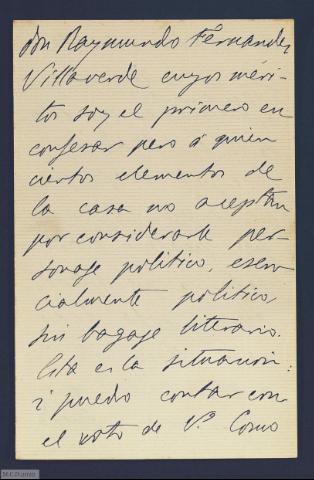 don Raymundo Fernandez
Villaverde cuyos méri-
tos soy el primero en
confesar pero á quien
ciertos elementos de
la casa no aceptan
por considerarle per-
sonaje politico, esen-
cialmente politico,
sin bagaje literario.
Esta es la situacion:
i puedo contar con
el voto de V.? Como